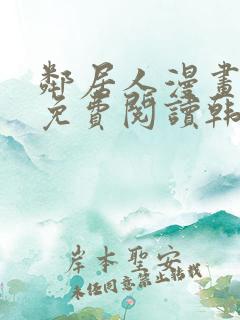 鄰居人漫畫
免費閱讀韩
岸本聖安
未任同意禁止轉載